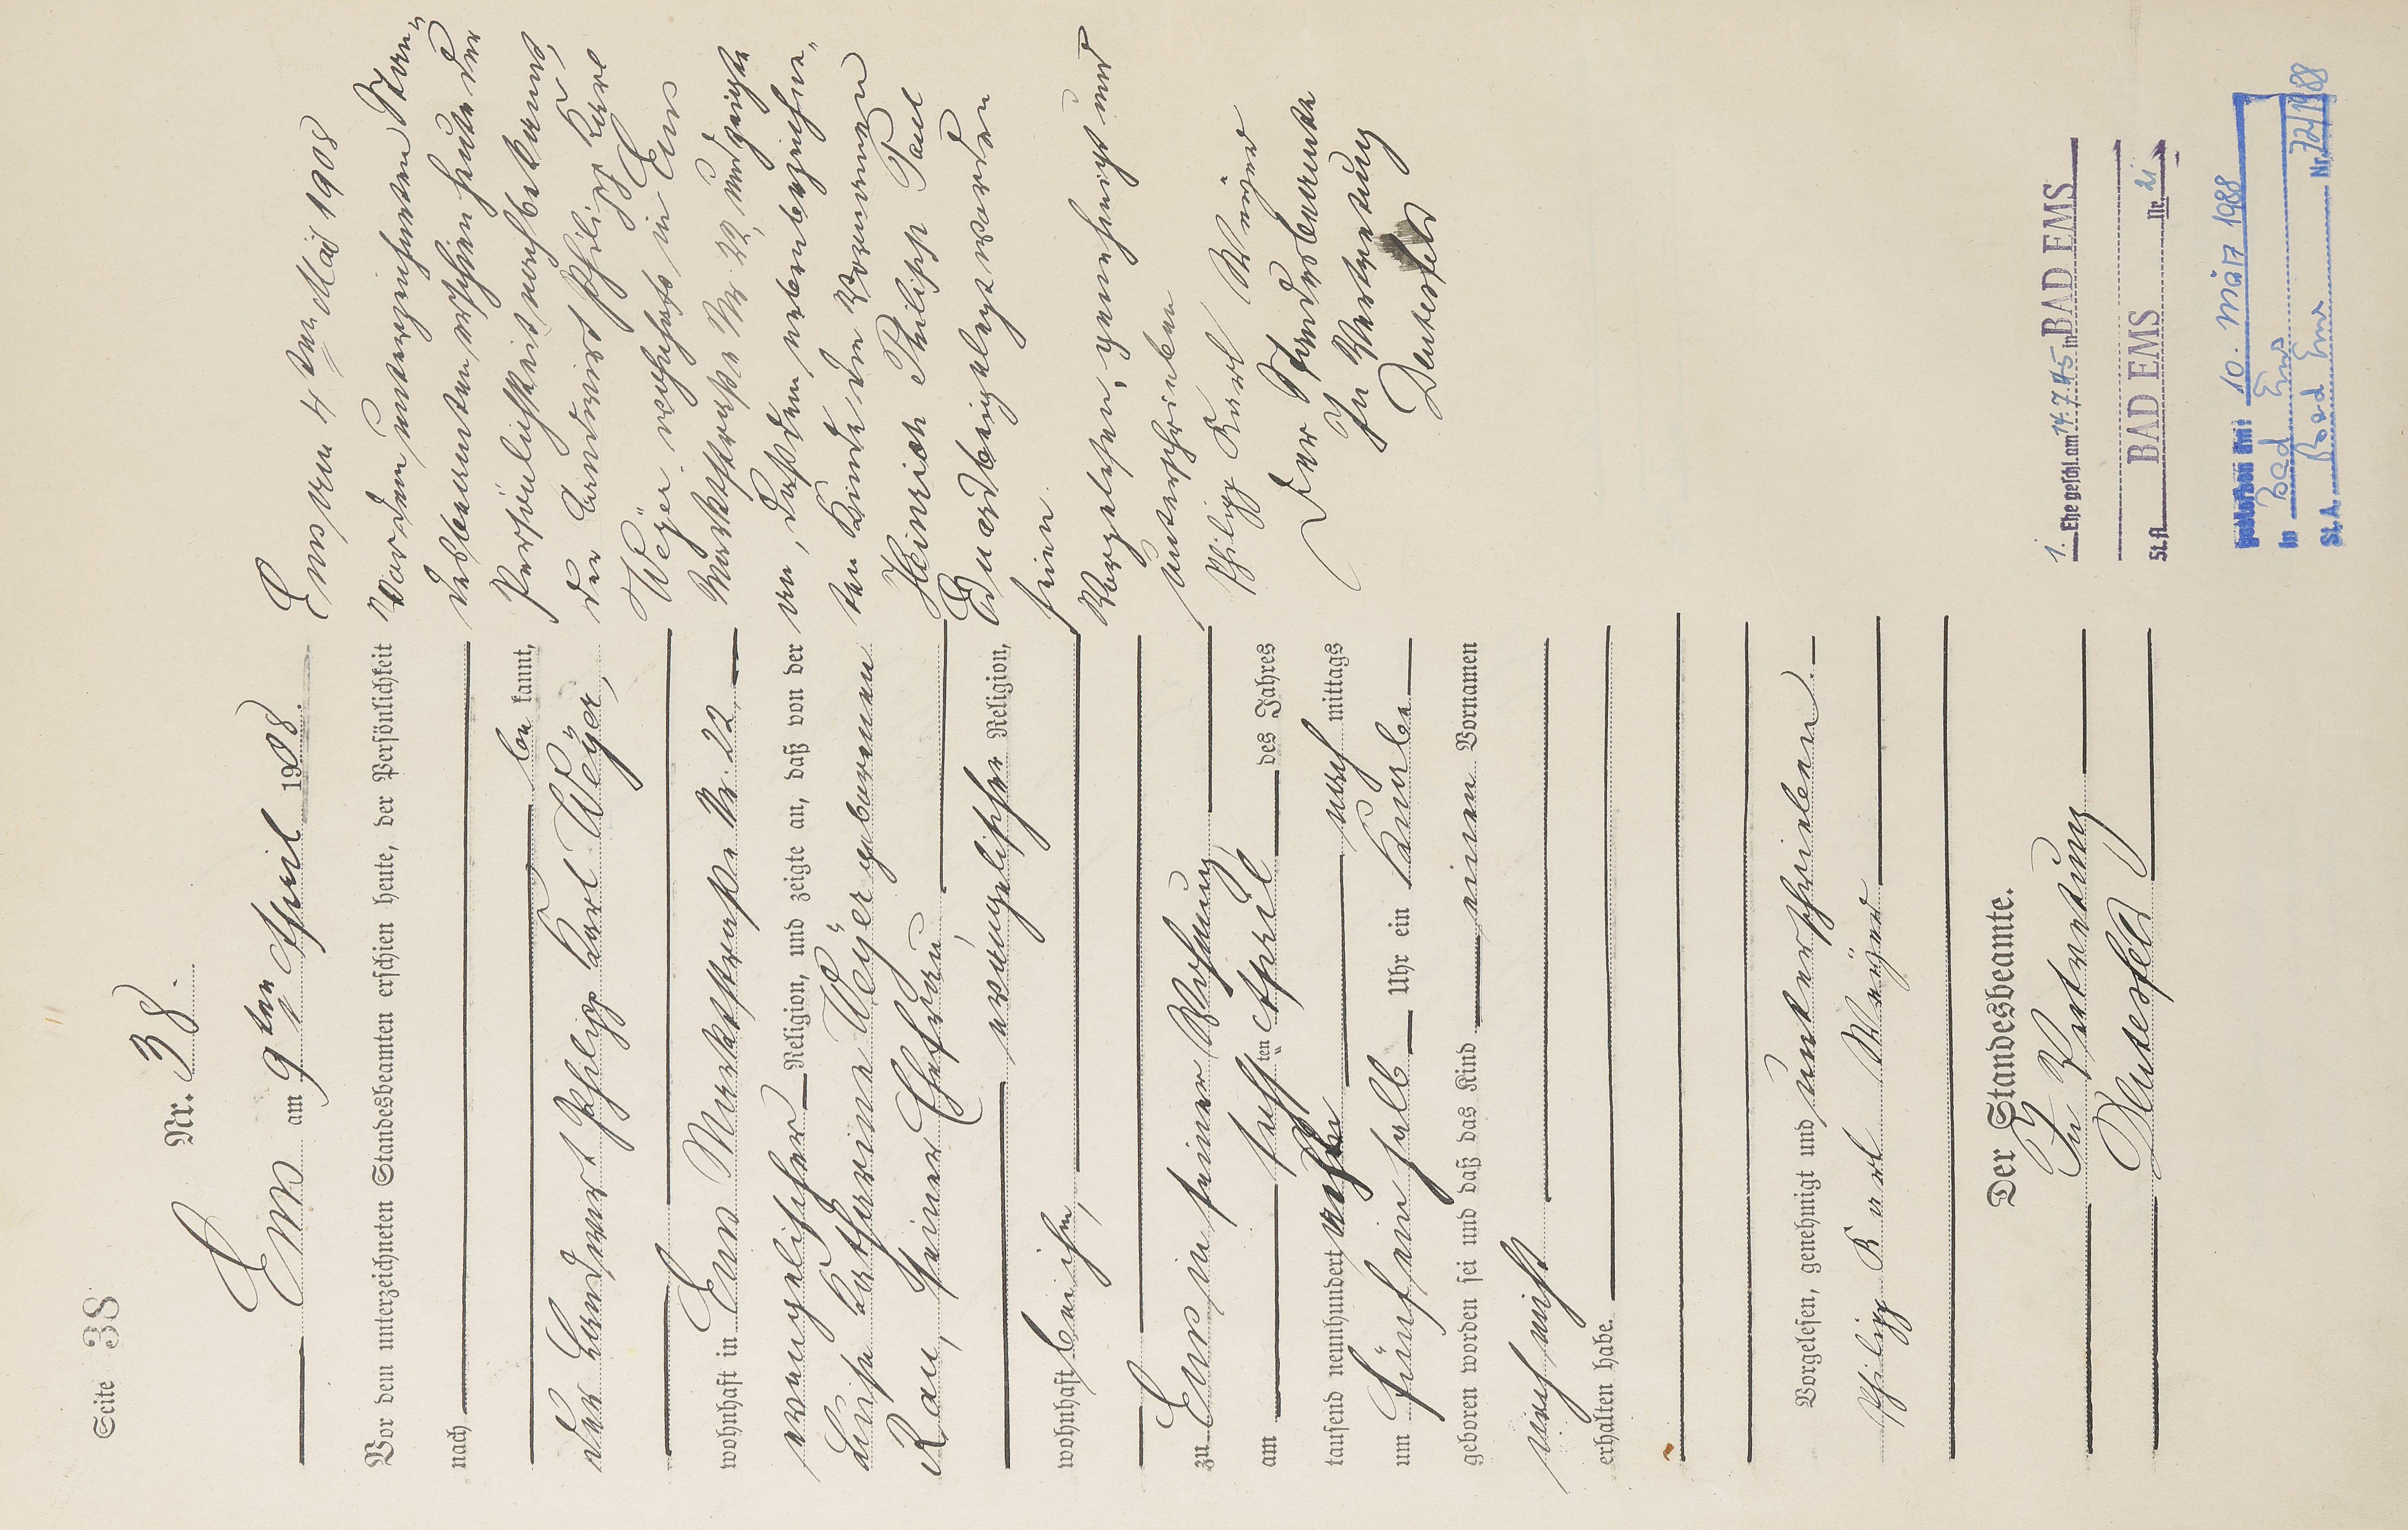 Seite 38
Nr. 38.
Ems am 9ten April 1908.
Vor dem unterzeichneten Standesbeamten erschien heute, der Persönlichkeit
nach
be kannt,
der Landwirt Philipp Karl Wëyer,
wohnhaft in Ems Marktstraße Nr. 22,
evangelischer Religion, und zeigte an, daß von der
Luise Katharine Wëyer geborenen
Rau, seiner Ehefrau,
evangelischer Religion,
wohnhaft bei ihm,
zu Ems in seiner Wohnung
am sechsten April des Jahres
tausend neunhundert acht nach mittags
um fünf ein halb Uhr ein Knabe
geboren worden sei und daß das Kind einen Vornamen
noch nicht
erhalten habe.
Vorgelesen, genehmigt und unterschrieben.
Philipp Karl Weyer
Der Standesbeamte.
In Vertretung
Deutesfeld
Ems den 4ten Mai 1908
Vor dem unterzeichneten Stan"
desbeamten erschien heute der
Persönlichkeit nach bekannt,
der Landwirt Philipp Karl
Wëyer, wohnhaft in Ems
Marktstraße Nr. 22, und zeigte
an, daß dem nebenbezeichne"
ten Kinde die Vornamen
Heinrich Philipp Paul
Eduard beigelegt worden
seien.
Vorgelesen, genehmigt und
unterschrieben
Philipp Karl Weyer
Der Standesbeamte
In Vertretung
Deutesfeld
1. Ehe geschl. am 14.7.45 in BAD EMS
St.A. BAD EMS Nr. 21
gestorben am: 10. März 1988
in Bad Ems
St. A. Bad Ems Nr. 72/1988